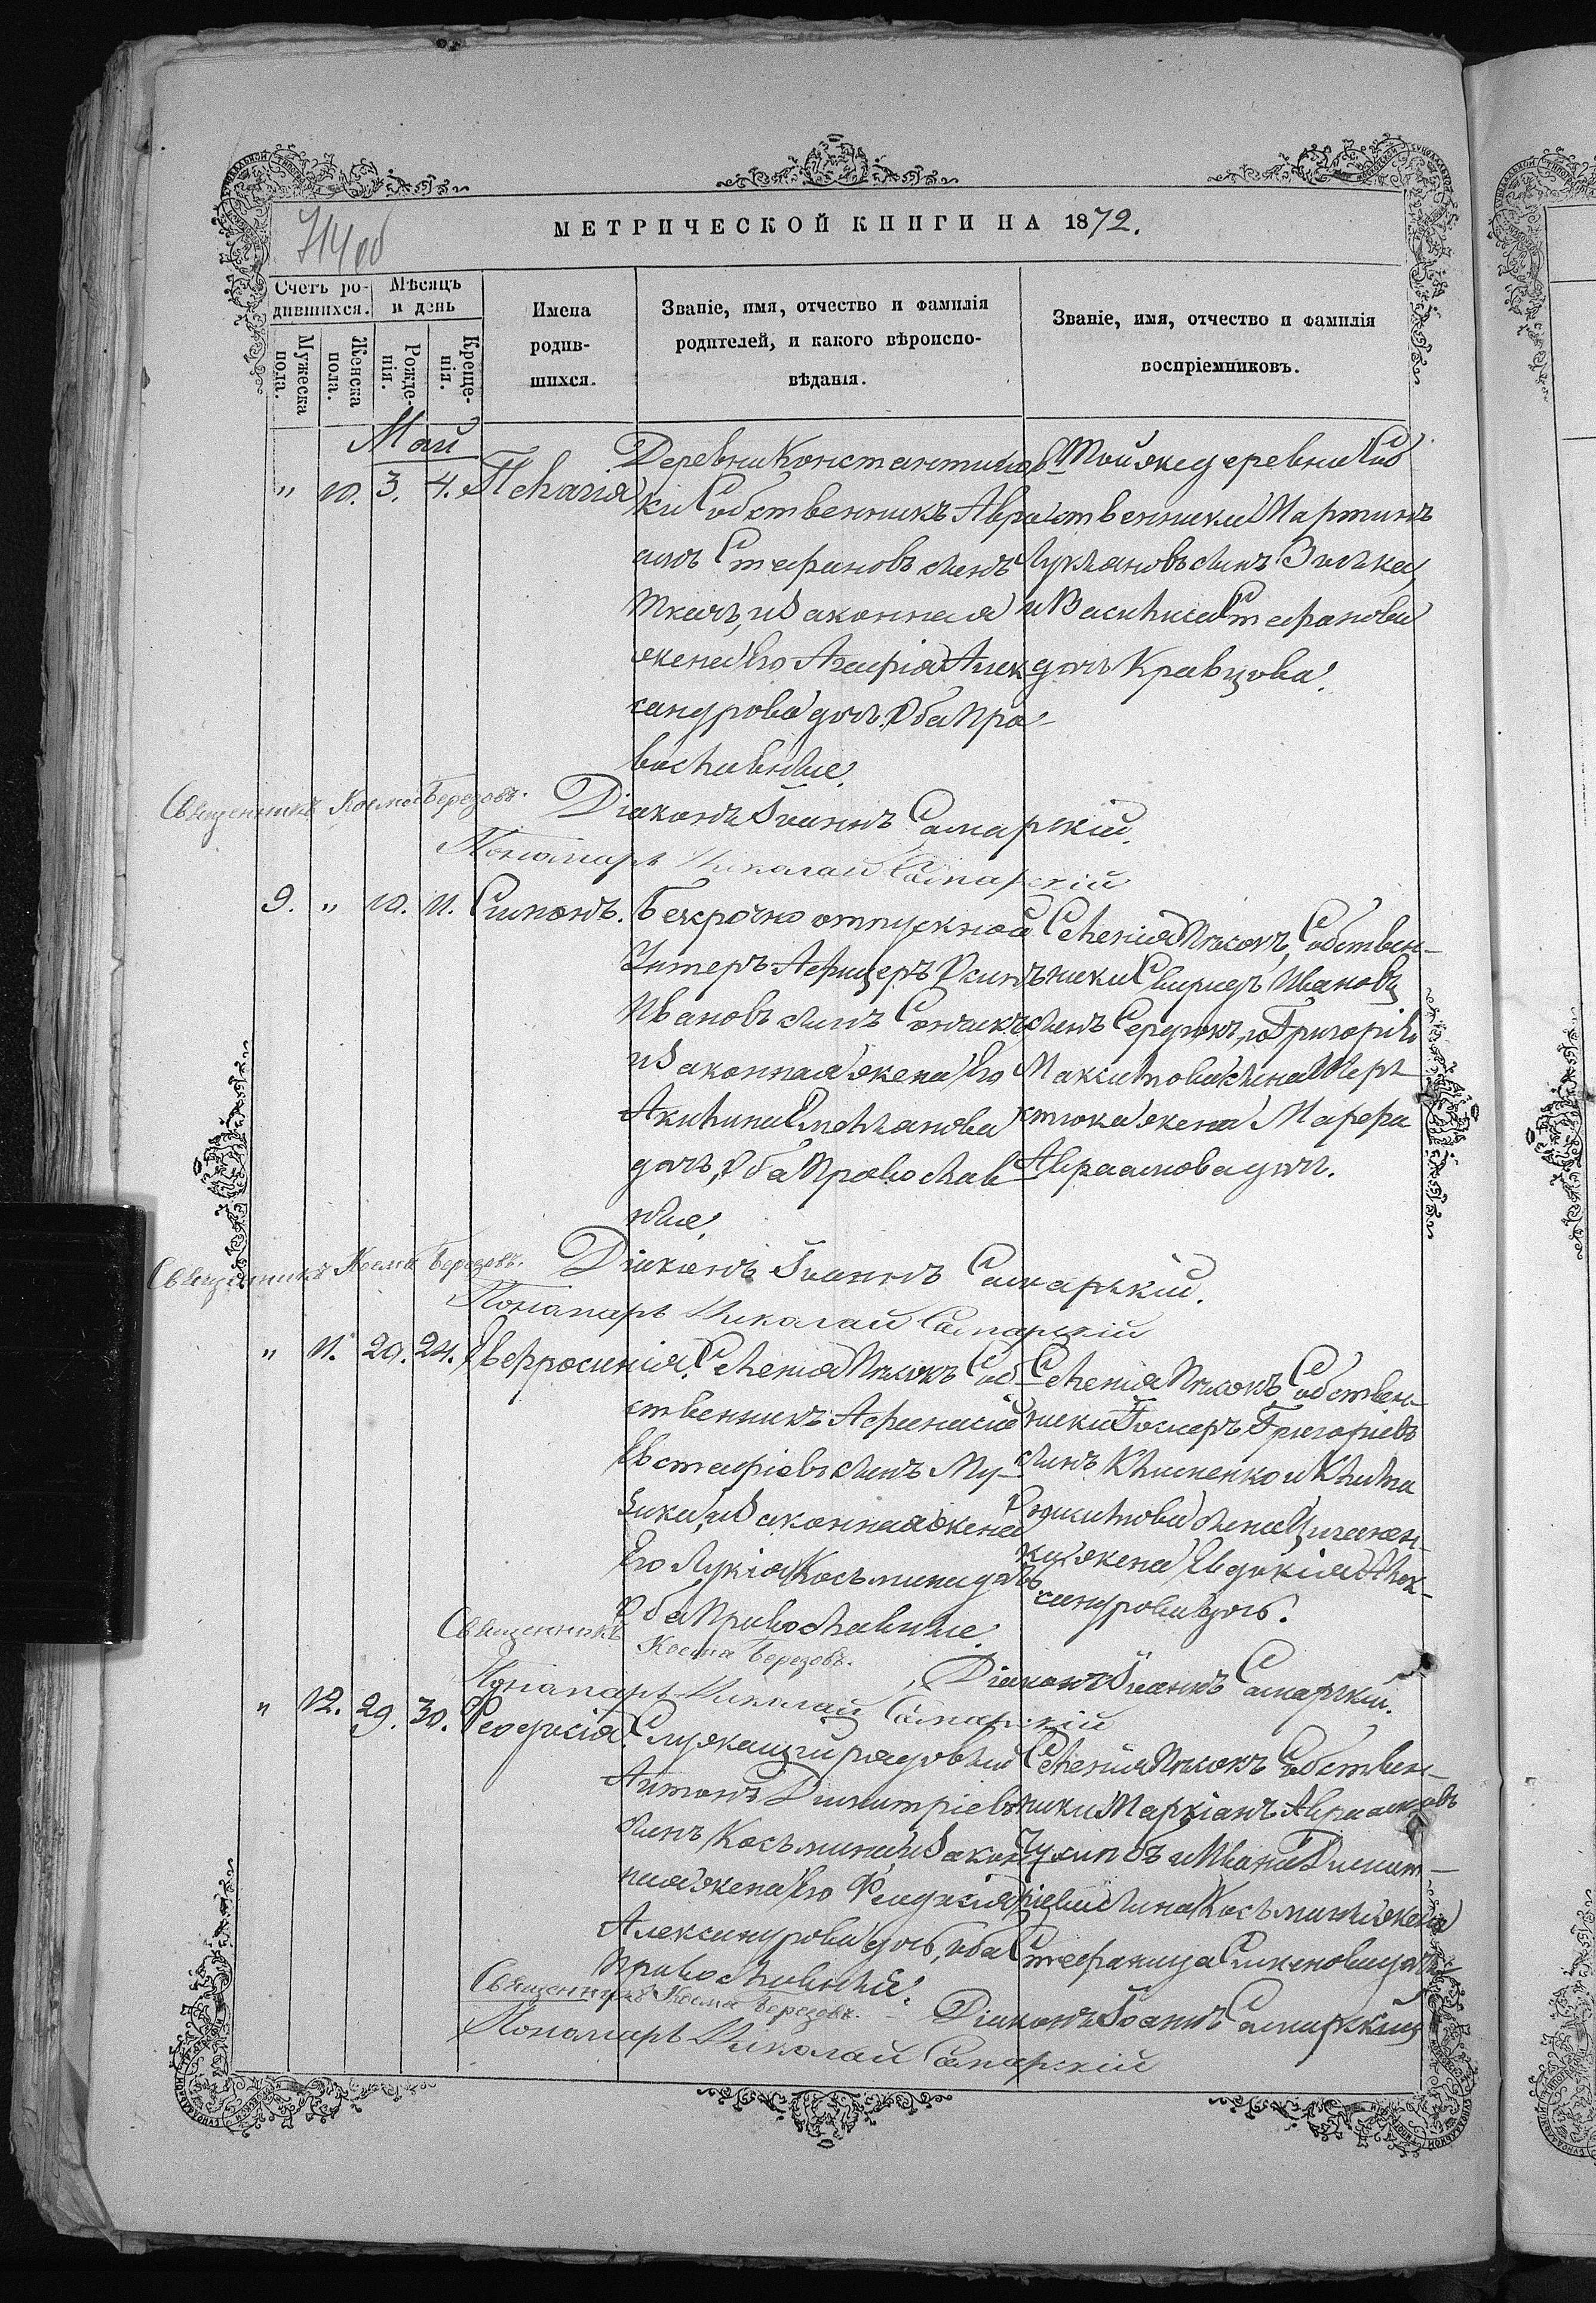 МЕТРИЧЕСКОЙ КНИГИ НА 1872.
714 об
Счетъ ро-
дившихся.
Мѣсяцъ
и день
Мужеска
пола.
Женска
пола.
Рожде-
нія.
Креще-
нія.
Имена
родив-
шихся.
Званіе, имя, отчество и фамилія
родителей, и какого вѣроиспо-
вѣданія.
Званіе, имя, отчество и фамилія
воспріемниковъ.
Май
" 10. 3. 4. Пелагія
Деревни Константинов-
ки Собственникъ Авра-
амъ Стефановъ сынъ
Ткачъ, и законная
жена Его Агафія Алек-
сандрова дочь. Оба пра-
вославные.
Той же деревни Соб-
ственники Мартинъ
Лукіановъ сынъ Зычка
и Василиса Стефанова
дочь Кравцова.
Священникъ Косма Березовъ.
Діаконъ Іоаннъ Самарскій.
Пономарь Николай Самарскій
9. " 10. 11. Симонъ.
Безсрочно отпускной
Унтеръ Афицеръ Осипъ
Ивановъ сынъ Сончикъ
и законная жена Его
Акилина Емельянова
дочь, Оба Православ-
ные.
Селенія Пѣсокъ, Собствен-
ники Свиридъ Ивановъ
сынъ Сердюкъ, и Григорія
Максимова сына Шер-
стюка жена Марфа
Авраамова дочь.
Священникъ Косма Березовъ.
Діаконъ Іоаннъ Самарскій.
Пономарь Николай Самарскій
" 11. 20. 24. Евфросинія.
Селенія Пѣсокъ Соб-
ственникъ Афанасій
Евстафіевъ сынъ Му-
зика, и законная жена
Его Лукія Косьмина дочь
Оба Православные.
Селенія Пѣсокъ Собствен-
ники Григоріевъ
сынъ Клименко и
сына Циганен-
ка жена Евдокія Алек-
сандрова дочь.
Священникъ
Косма Березовъ.
Діаконъ Іоаннъ Самарскій.
Пономарь Николай Самарскій
" 12. 29. 30. Феодосія.
Служащий рядовый
Антонъ Димитріевъ
сынъ Косьминъ и закон-
ная жена Его Феодосія
Александрова дочь, оба
православные.
Селенія Пѣсокъ Собствен-
ники Маркіанъ Авраамовъ
и Ивана Димит-
ріева сына Косьмина жена
Стефанида Симеонова дочь
Священникъ Косма Березовъ.
Діаконъ Іоаннъ Самарскій
Пономарь Николай Самарскій